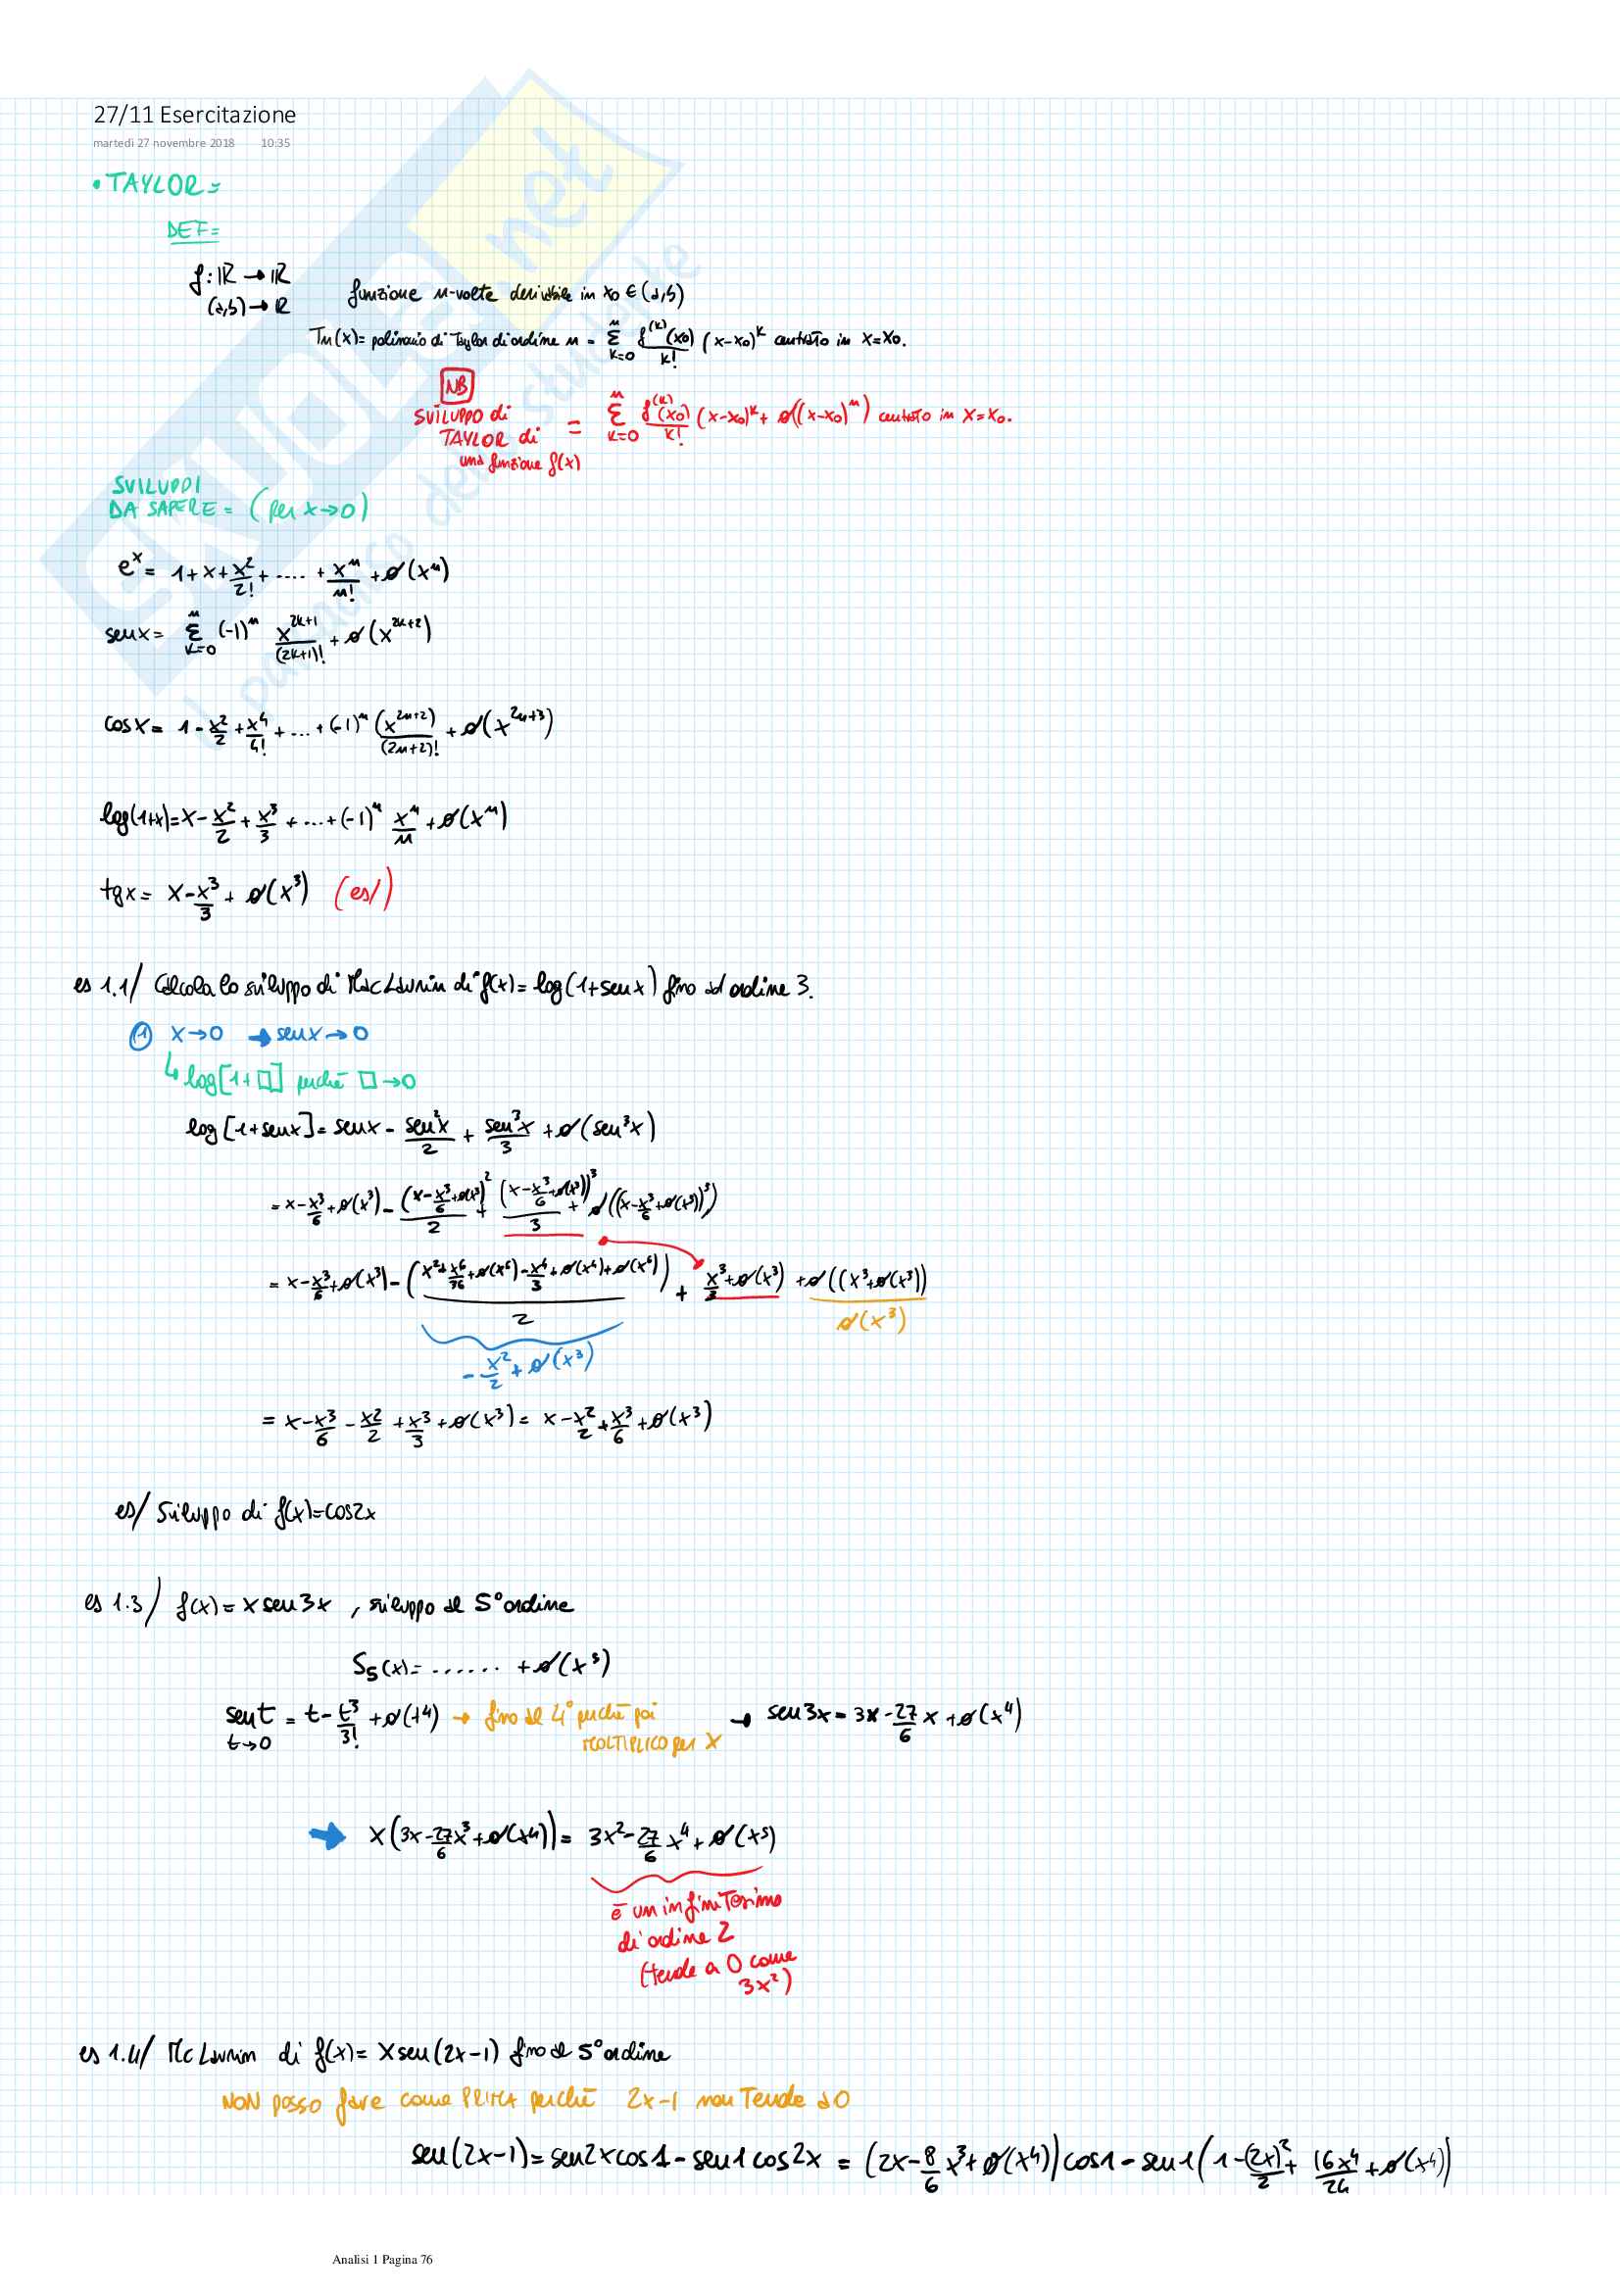 27/11 Esercitazione
martedì 27 novembre 2018 10:35
• TAYLOR =
DEF =
f: ℝ → ℝ
(a,b) → ℝ funzione n-volte derivabile in x₀ ∈ (a,b)
Tn(x) = polinomio di Taylor di ordine n = Σ_{k=0}^{n} f^(k)(x₀)/k! (x-x₀)^k centrato in x=x₀.
NB
SVILUPPO di TAYLOR di una funzione f(x) = Σ_{k=0}^{n} f^(k)(x₀)/k! (x-x₀)^k + o((x-x₀)^n) centrato in x=x₀.
SVILUPPI
DA SAPERE = (per x→0)
e^x = 1+x+x²/2!+....+x^n/n!+o(x^n)
senx = Σ_{k=0}^{n} (-1)^n x^{2k+1}/(2k+1)! + o(x^{2k+2})
cosx = 1-x²/2+x⁴/4!+...+(-1)^n (x^{2n+2})/(2n+2)! + o(x^{2n+3})
log(1+x)=x-x²/2+x³/3+...+(-1)^n x^n/n+o(x^n)
tgx = x-x³/3+o(x³) (es/)
es 1.1/ Calcola lo sviluppo di MacLaurin di f(x)=log(1+senx) fino ad ordine 3.
① x→0 → senx→0
↳ log[1+□] perché □→0
log[1+senx]=senx-sen²x/2+sen³x/3+o(sen³x)
= x-x³/6+o(x³)-(x-x³/6+o(x³))²/2+(x-x³/6+o(x³))³/3+o((x-x³/6+o(x³))³)
= x-x³/6+o(x³)-(x²+x⁶/76+o(x⁶)-x⁴/3+o(x⁴)+o(x⁶))/2 + x³/3+o(x³)+o((x³+o(x³))
o(x³)
-x²/2+o(x³)
= x-x³/6-x²/2+x³/3+o(x³)= x-x²/2+x³/6+o(x³)
es/ Sviluppo di f(x)=cos2x
es 1.3/ f(x)=x sen3x , sviluppo al 5° ordine
S₅(x)=......+o(x⁵)
sen t = t-t³/3!+o(t⁴) → fino al 4° perché poi → sen3x=3x-27/6 x+o(x⁴)
t→0 MOLTIPLICO per x
→ x(3x-27/6 x³+o(x⁴))= 3x²-27/6 x⁴+o(x⁵)
è un infinitesimo
di ordine 2
(tende a 0 come
3x²)
es 1.4/ Mc Laurin di f(x)= x sen(2x-1) fino al 5° ordine
NON posso fare come PRIMA perché 2x-1 non Tende a 0
sen(2x-1)=sen2xcos1-sen1cos2x = (2x-8/6 x³+o(x⁴))cos1-sen1(1-(2x)²/2+16x⁴/24+o(x⁴))
Analisi 1 Pagina 76